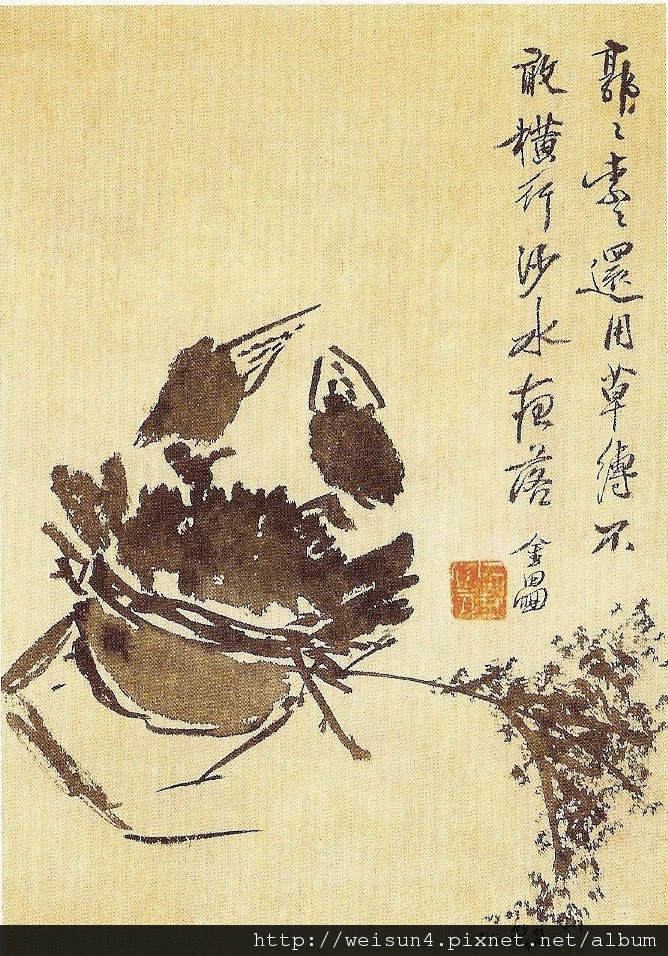 郭〻索〻還用草縛不
敢橫行沙水夜落
金畾
http://weisun4.pixnet.net/album